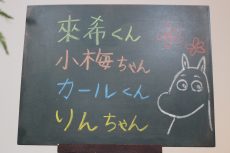 來希くん
小梅ちゃん
カールくん
りんちゃん